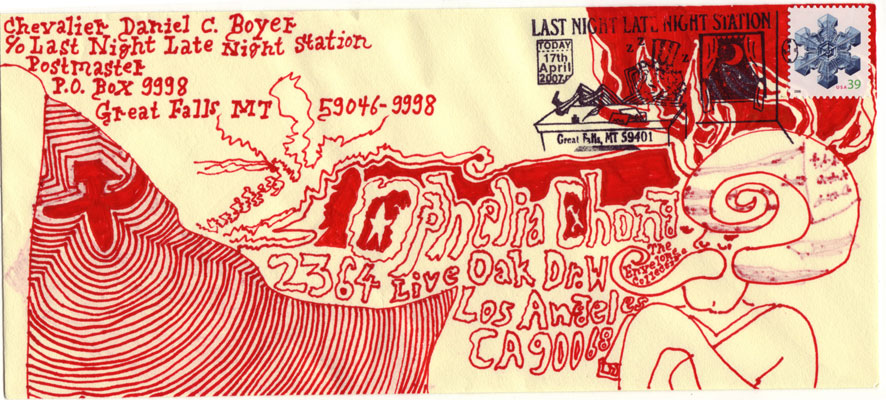 Chevalier Daniel C. Boyer
c/o Last Night Late Night Station
Postmaster
P.O. Box 9998
Great Falls MT 59046-9998
LAST NIGHT LATE NIGHT STATION
TODAY
17th
April
2007
z z
Great Falls, MT 59401
USA 39
Ophelia Chong
The
Envelope
Collector
2364 Live Oak Dr. W
Los Angeles
CA 90068